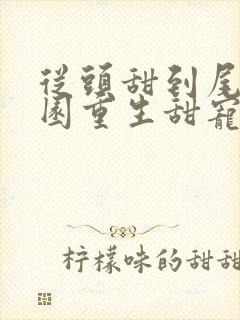 從頭甜到尾
園重生甜寵
柠檬味的甜甜